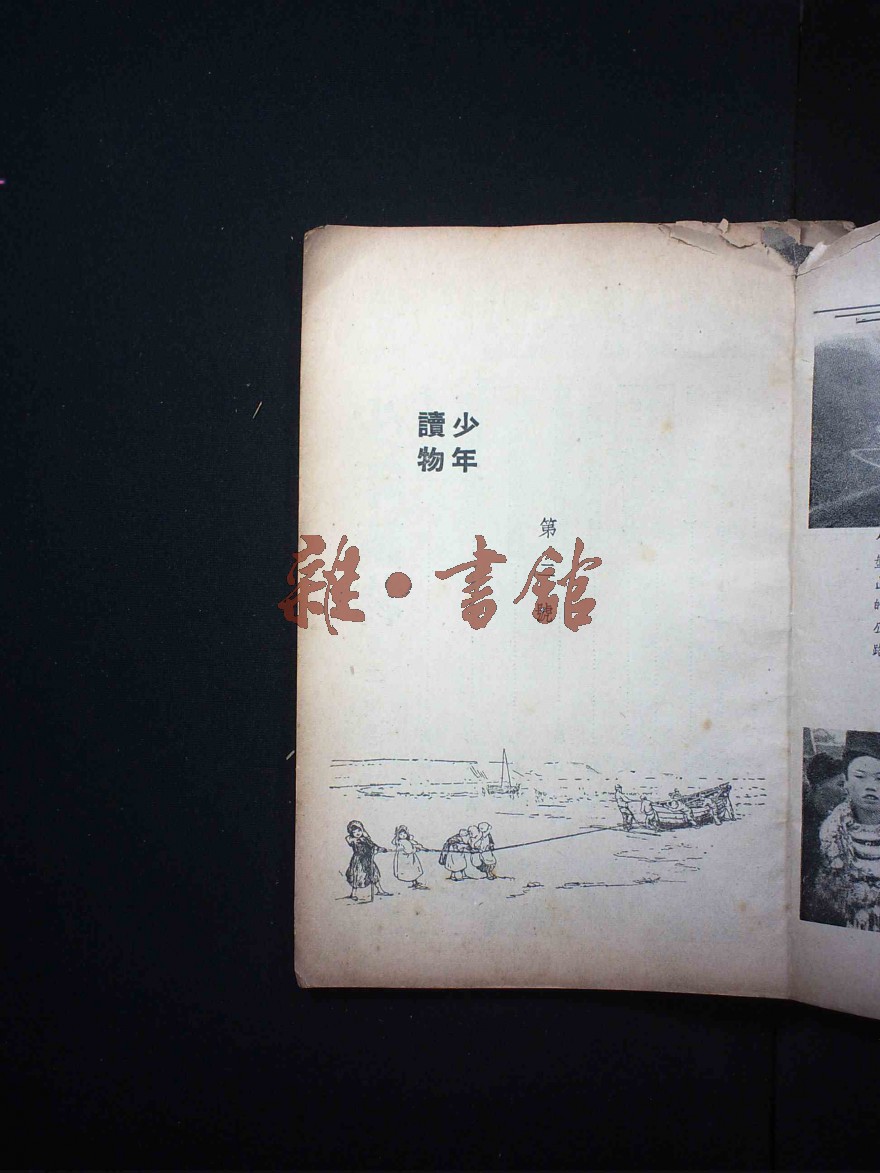 少年
讀物
第
號
雜·書館